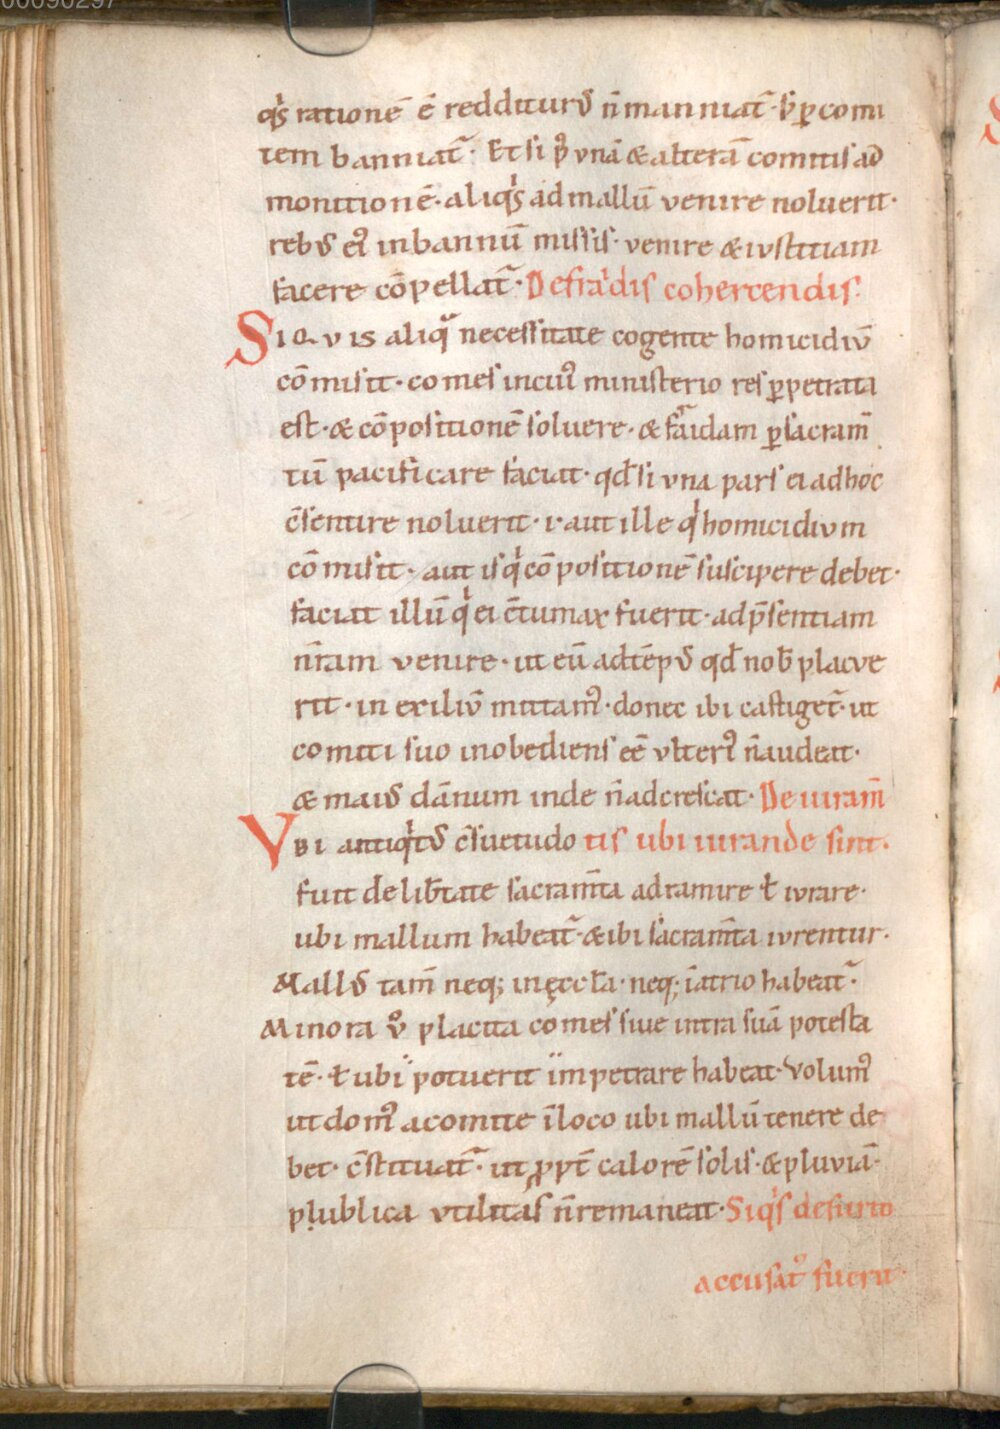 00090297
qͥs rationē ē redditurꝰ n̄ manniat᷑· s̄ ꝑ comi
tem banniat᷑· Et si p̄ vnā & alterā comitis ad
monitionē· aliqͥs ad mallū venire noluerit·
rebꝰ eiꝰ in bannū missis· venire & iustitiam
facere cōpellat᷑· De fraͥdis cohercendis·
SI Qvis aliqͣ necessitate cogente homicidiū
cōmisit· comes in cuiꝰ ministerio res ꝑpetrata
est· & cōpositionē soluere· & faͣidam ꝑ sacram̄
tū pacificare faciat· qd̄ si vna pars ei ad hoc
c̄sentire noluerit· i· aut ille qͥ homicidivm
cōmisit· aut is qͥ cōpositionē suscipere debet·
faciat illū qͥ ei c̄tumax fuerit· ad p̄sentiam
nr̄am venire· ut eū ad tēpꝰ qd̄ nob̄ placve
rit· in exiliū mittamꝰ· donec ibi castiget᷑· ut
comiti suo inobediens eē vlteriꝰ n̄ audeat·
& maiꝰ dānum inde n̄ adcrescat· De iuram̄
VBI antiqͥtꝰ c̄suetudo tis ubi iurande sint·
fuit de lib̄tate sacram̄ta adramire ł iurare·
ubi mallum habeat᷑· & ibi sacram̄ta iurentur·
Mallꝰ tam̄ neq; in ęccl̄a· neq; ī atrio habeat᷑·
Minora vͦ placita comes siue intra suā potesta
tē· ł ubi potuerit impetrare habeat· Volumꝰ
ut domꝰ a comite ī loco ubi mallū tenere de
bet· c̄stituat᷑· ut ꝓpt̄ calorē solis· & pluviā·
plublica vtilitas n̄ remaneat· Si qͥs de furto
accusatꝰ fuerit·